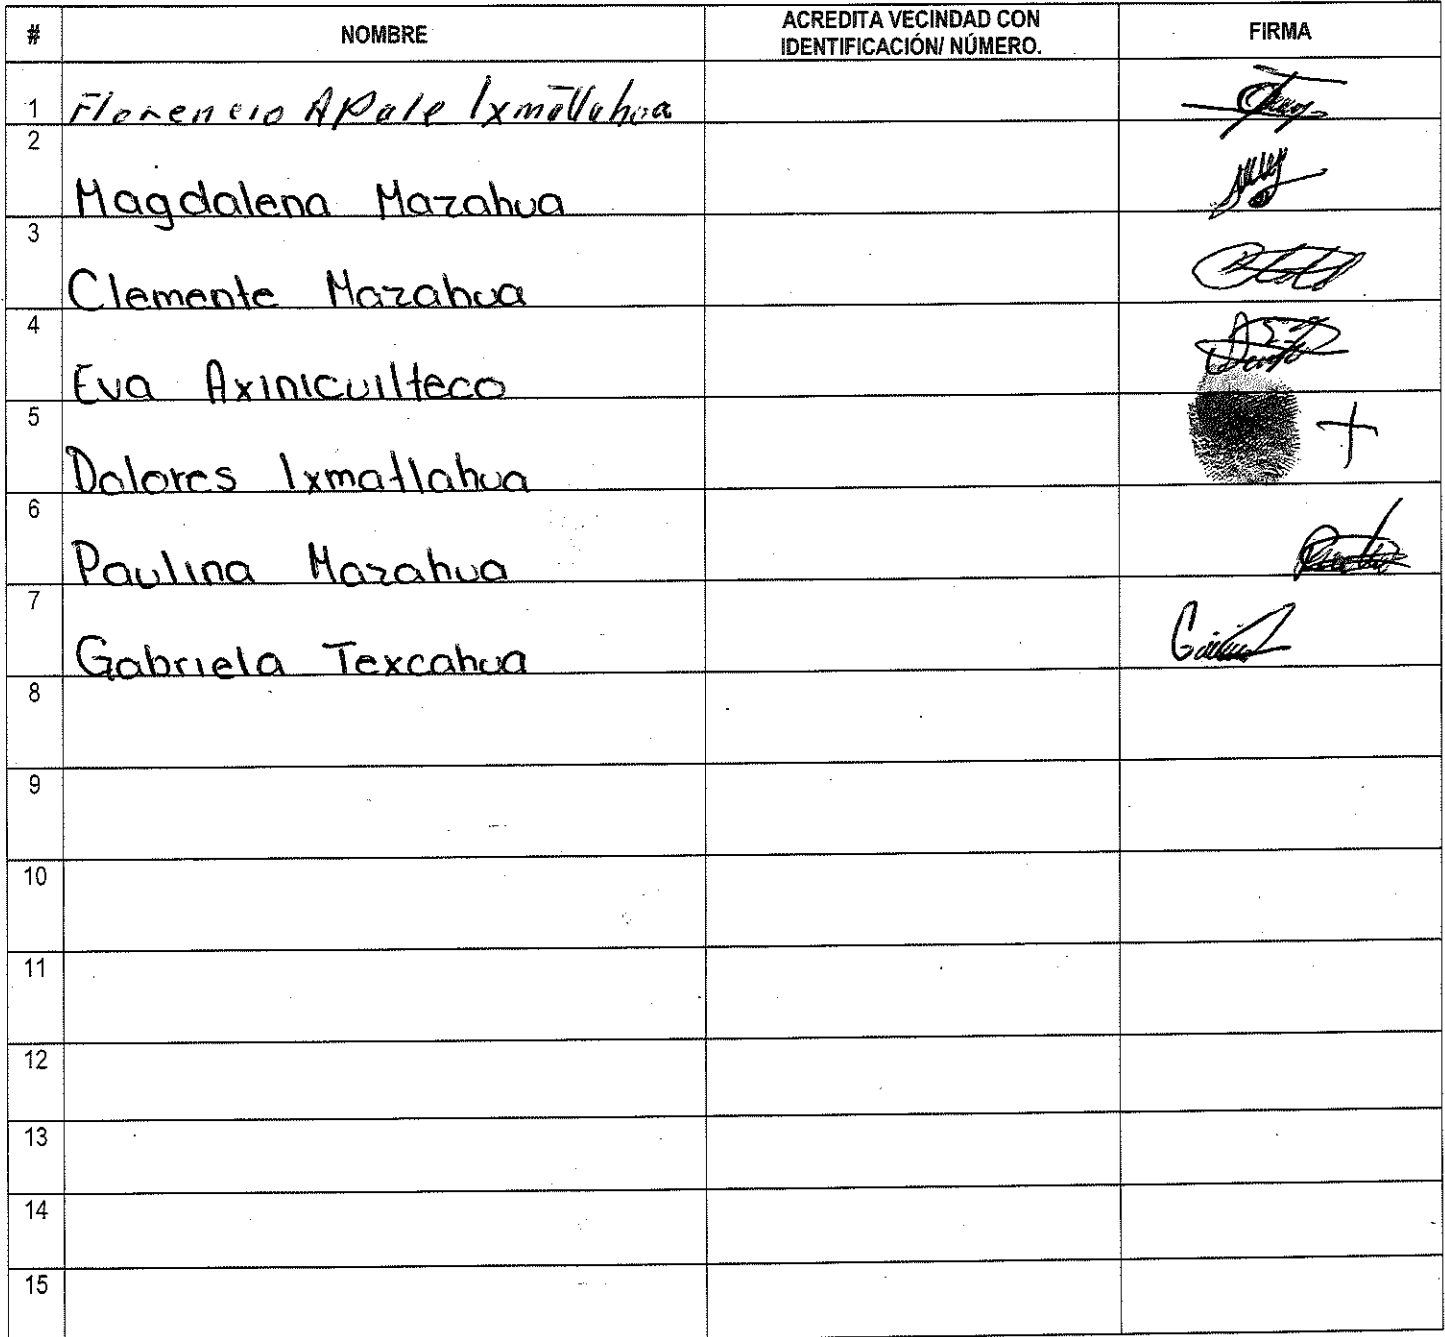 # NOMBRE ACREDITA VECINDAD CON IDENTIFICACIÓN/ NÚMERO. FIRMA
1 Florencio Apale Ixmatlahua
2 Magdalena Mazahua
3 Clemente Mazahua
4 Eva Axinicuilteco
5 Dolores Ixmatlahua +
6 Paulina Mazahua
7 Gabriela Texcahua
8
9
10
11
12
13
14
15